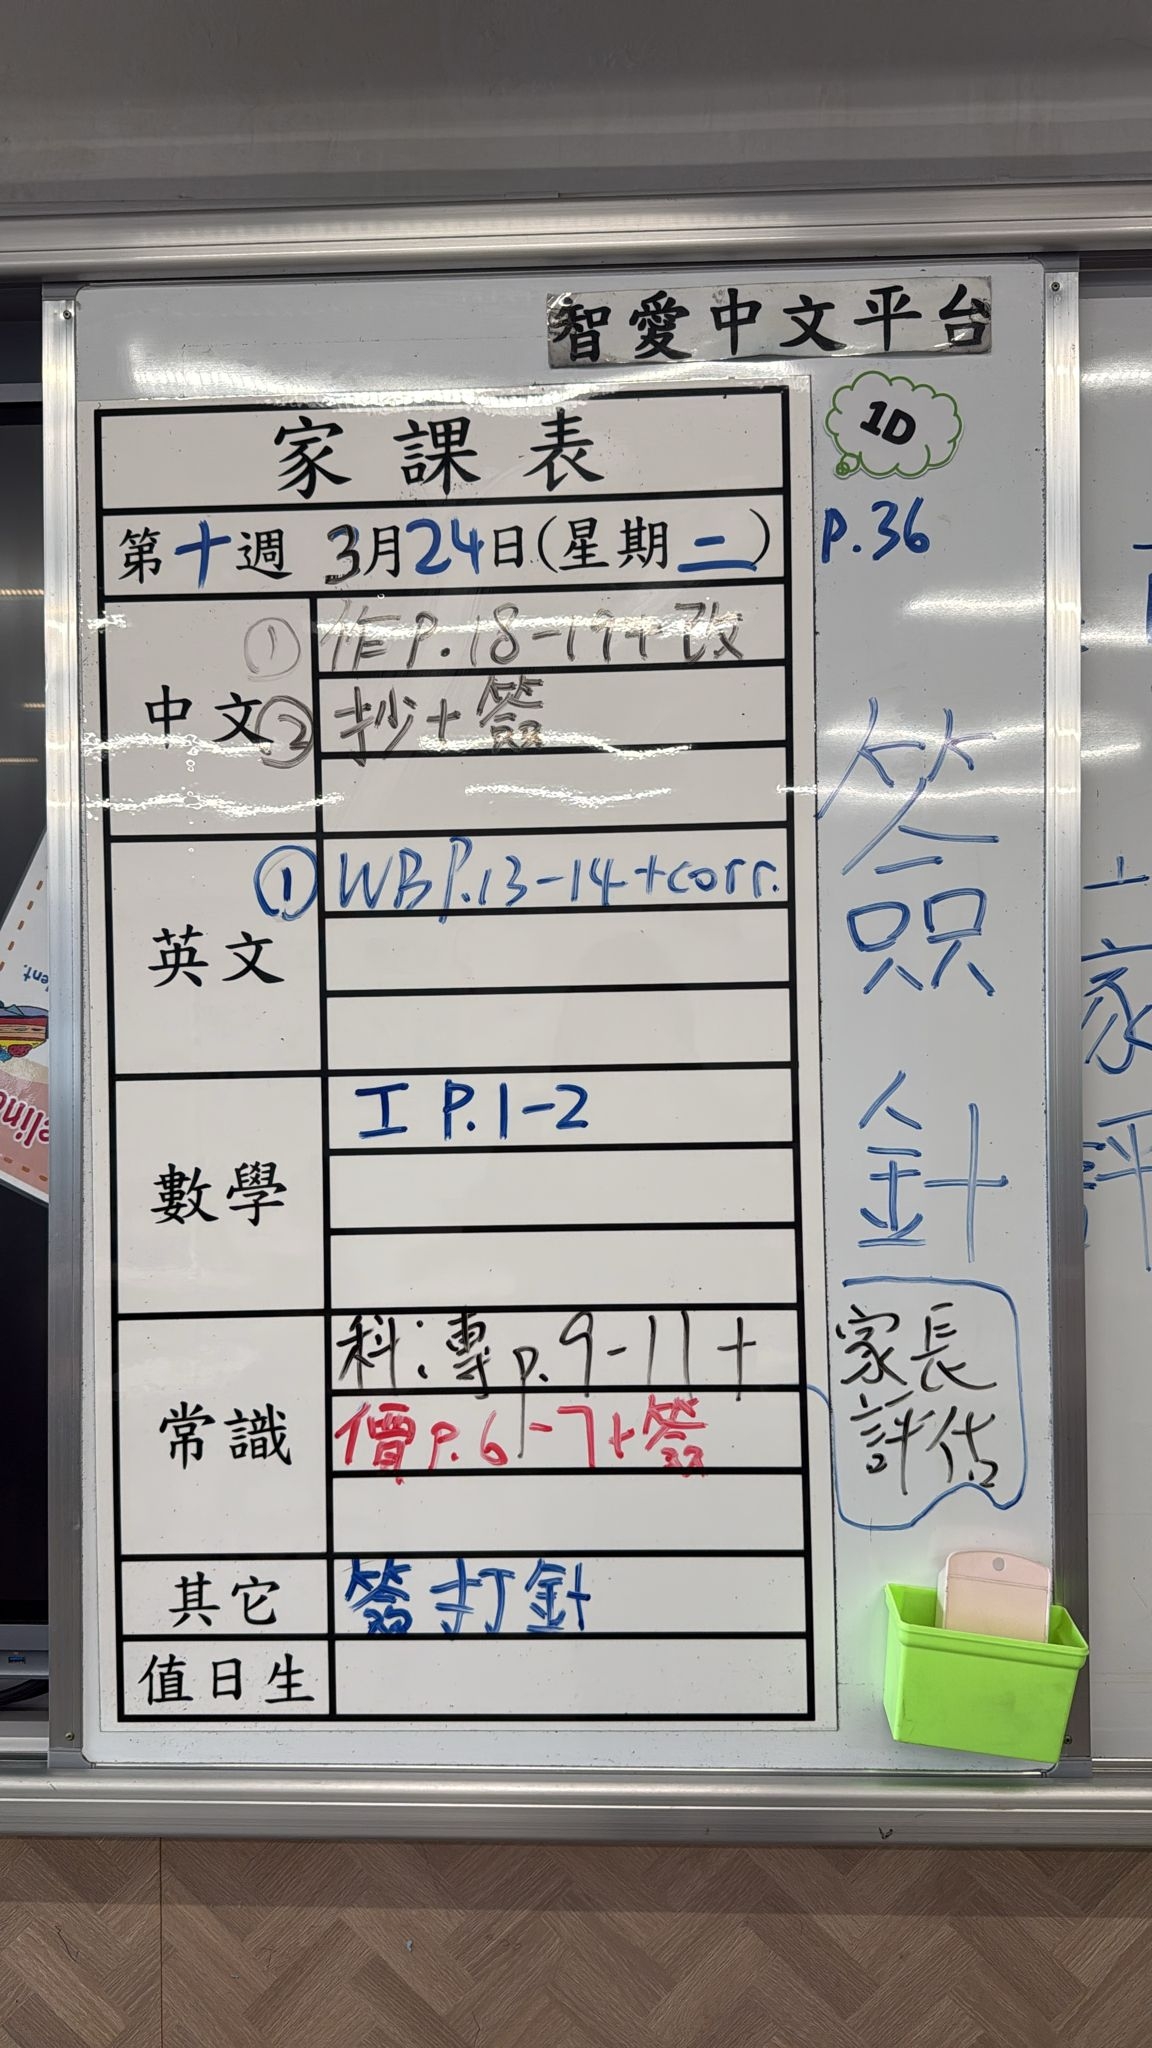 智愛中文平台
1D
P.36
家課表
第十週 3月24日(星期二)
中文
① 作P.18-19+改
② 抄+簽
英文
① WBP.13-14+corr.
數學
工 P.1-2
常識
科:專p.9-11+
價p.6-7+簽
其它
簽打針
值日生
簽
針
家長
評估
家
評